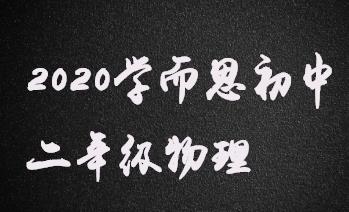 2020学而思初中
二年级物理